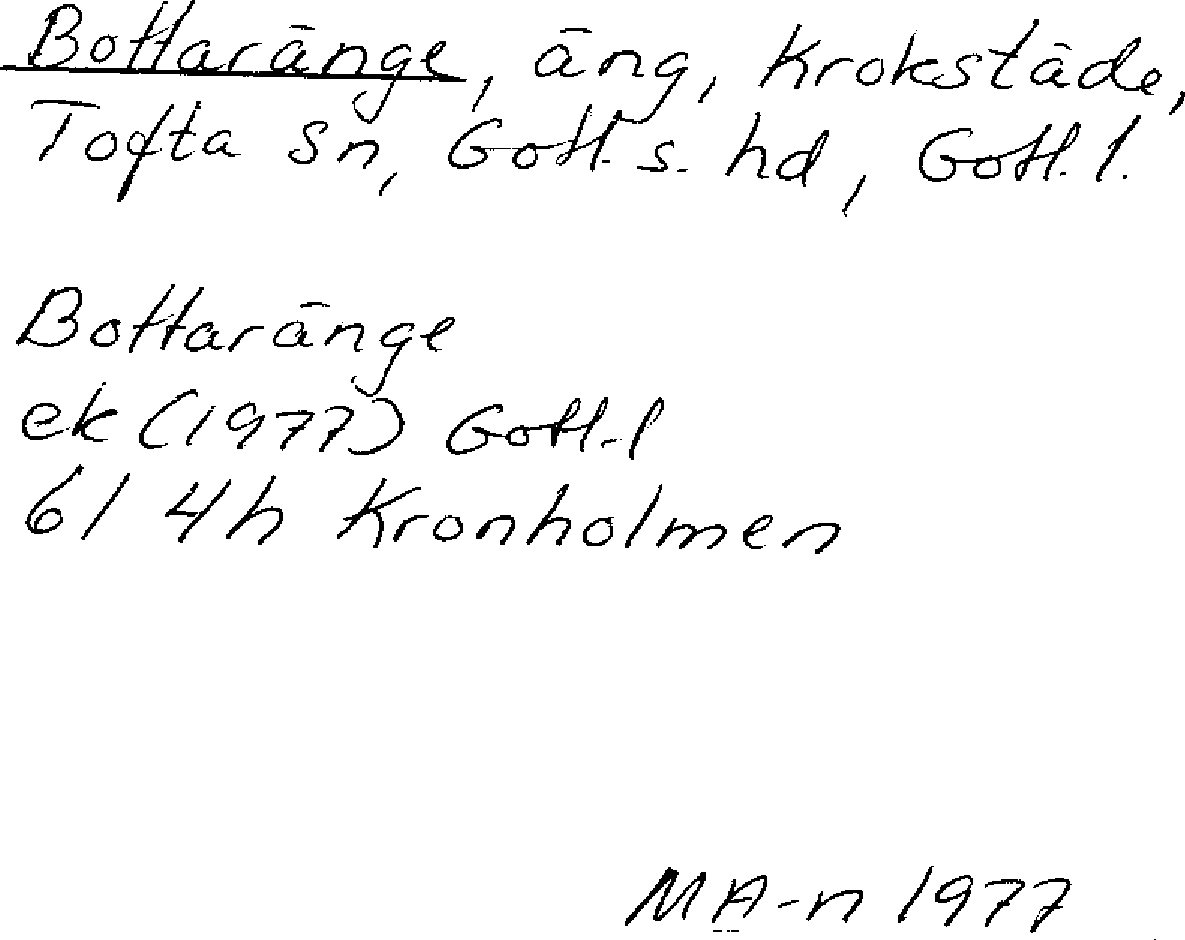 Bottaränge, äng, Krokstäde,
Tofta sn, Gotl. s. hd, Gotl. l.
Bottaränge
ek (1977) Gotl. l
6I 4h Kronholmen
MA-n 1977